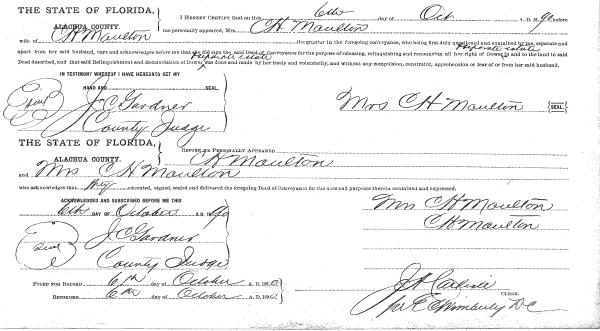 THE STATE OF FLORIDA,
ALACHUA COUNTY.
I HEREBY CERTIFY that on this 6th day of Oct A. D. 1890 before
me personally appeared, Mrs. CH Maulton
wife of CH Maulton the grantor in the foregoing conveyance, who being first duly questioned and examined by me, separate and
apart from her said husband, says and acknowledges before me that she did sign the said Deed of Conveyance for the purpose of releasing, relinquishing and renouncing all her right of Dower separate estate in and to the land in said
Deed described, and that said Relinquishment and Renunciation of Dower separate estate was done and made by her freely and voluntarily, and without any compulsion, constraint, apprehension or fear of or from her said husband.
IN TESTIMONY WHEREOF I HAVE HEREUNTO SET MY
HAND AND SEAL.
Seal
J C Gardner
County Judge
Mrs CH Maulton SEAL.
THE STATE OF FLORIDA,
ALACHUA COUNTY.
BEFORE ME PERSONALLY APPEARED CH Maulton
and Mrs CH Maulton
who acknowledges that they executed, signed, sealed and delivered the foregoing Deed of Conveyance for the uses and purposes therein contained and expressed.
ACKNOWLEDGED AND SUBSCRIBED BEFORE ME THIS
6th DAY OF October A. D. 1890
Seal
J C Gardner
County Judge
Mrs CH Maulton
CH Maulton
FILED FOR RECORD 6th day of October A. D. 1890
RECORDED 6th day of October A. D. 1890
CLERK.
per E E Wimberly DC